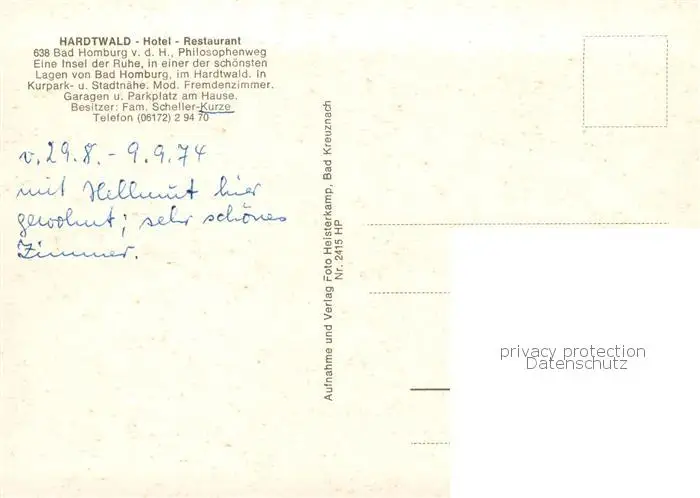 HARDTWALD - Hotel - Restaurant
638 Bad Homburg v. d. H., Philosophenweg
Eine Insel der Ruhe, in einer der schönsten
Lagen von Bad Homburg, im Hardtwald. In
Kurpark- u. Stadtnähe. Mod. Fremdenzimmer.
Garagen u. Parkplatz am Hause.
Besitzer: Fam. Scheller-Kurze
Telefon (06172) 2 94 70
v. 29.8. - 9.9.74
mit Hellmut hier
gewohnt; sehr schönes
Zimmer.
Aufnahme und Verlag Foto Heisterkamp, Bad Kreuznach
Nr. 2415 HP
privacy protection
Datenschutz